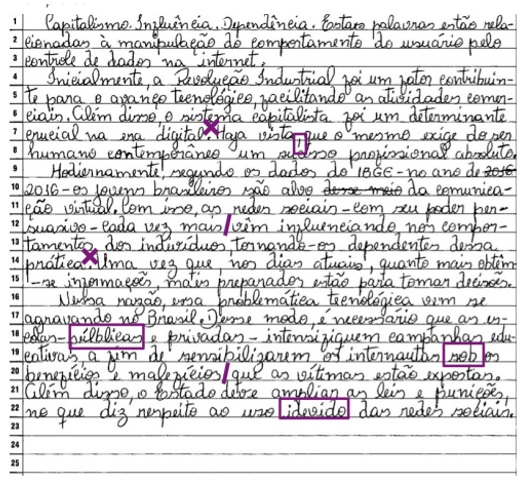 1 Capitalismo. Influência. Dependência. Estas palavras estão rela-
2 cionadas à manipulação do comportamento do usuário pelo
3 controle de dados na internet.
4 Inicialmente, a Revolução Industrial foi um fator contribuin-
5 te para o avanço tecnológico, facilitando as atividades comer-
6 ciais. Além disso, o sistema capitalista foi um determinante
7 crucial na era digital. Haja vista, que o mesmo exige do ser
8 humano contemporâneo um sucesso profissional absoluto.
9 Hodiernamente, segundo os dados do IBGE - no ano de 2016
10 2016 - os jovens brasileiros são alvo desse meio da comunica-
11 ção virtual. Com isso, as redes sociais - com seu poder per-
12 suasivo - cada vez mais vêm influenciando nos compor-
13 tamentos dos indivíduos, tornando-os dependentes dessa
14 prática. Uma vez que, nos dias atuais, quanto mais obtêm
15 -se informações, mais preparados estão para tomar decisões.
16 Nessa razão, essa problemática tecnológica vem se
17 agravando no Brasil. Desse modo, é necessário que as es-
18 colas - púlblicas e privadas - intensifiquem campanhas edu-
19 cativas a fim de sensibilizarem os internautas sob os
20 benefícios e malefícios que as vítimas estão expostas.
21 Além disso, o Estado deve ampliar as leis e punições,
22 no que diz respeito ao uso idevido das redes sociais.
23
24
25